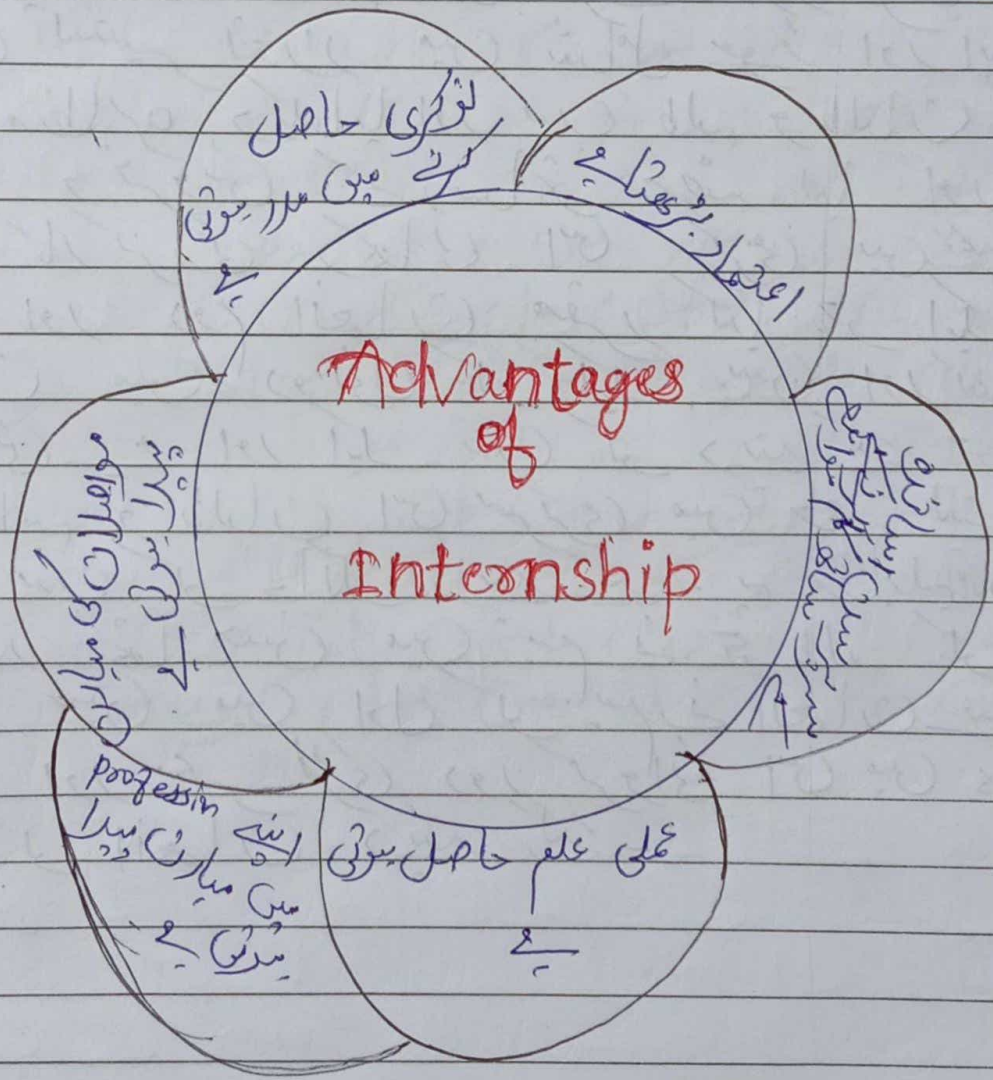 Advantages
of
Internship
نوکری حاصل
کرنے میں مدد ہوتی
ہے
اعتماد بڑھتا ہے
اساتذہ
کے
سیکھنے کا موقع
ہے
عملی علم حاصل ہوتی
ہے
اپنے Professin
میں مہارت پیدا
ہوتی ہے
مواصلات کی مہارت
پیدا ہوتی ہے